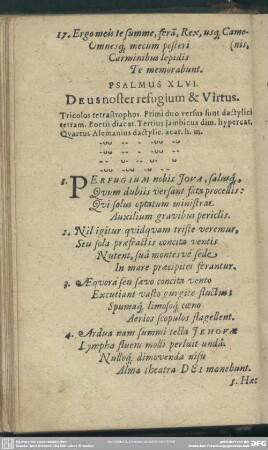 17. Ergo meis te summe, ferã, Rex, usq; Came-
Omnesq́; mecum posteri (nis,
Carminibus lepidis
Te memorabunt.
PSALMUS XLVI.
DEUS noster refugium & Virtus.
Tricolos tetrastrophos. Primi duo versus sunt dactylici
tetram. Poetii diacat. Tertius Jambicus dim. hypercat.
Qvartus Alemanius dactylic. acat. h. m.
1. PERFUGIUM nobis JOVA, salusq́;,
Qvum dubiis versant fata procellis:
Qui solus optatum ministrat
Auxilium gravibus periclis.
2. Nil igitur qvidqvam triste veremur,
Seu sola præfractis concita ventis
Nutent, suâ montesve sede
In mare præcipites ferantur.
3. Æqvora seu sævo concita vento
Excutiant vasto gurgite fluctus:
Spumaq́; limosoq́; cœno
Aërios scopulos flagellent.
4. Ardua nam summi tecta JEHOVÆ
Lympha fluens molli perluit undâ.
Nulloq́; dimovenda nisu
Alma theatra DEI manebunt.
5. Hæc